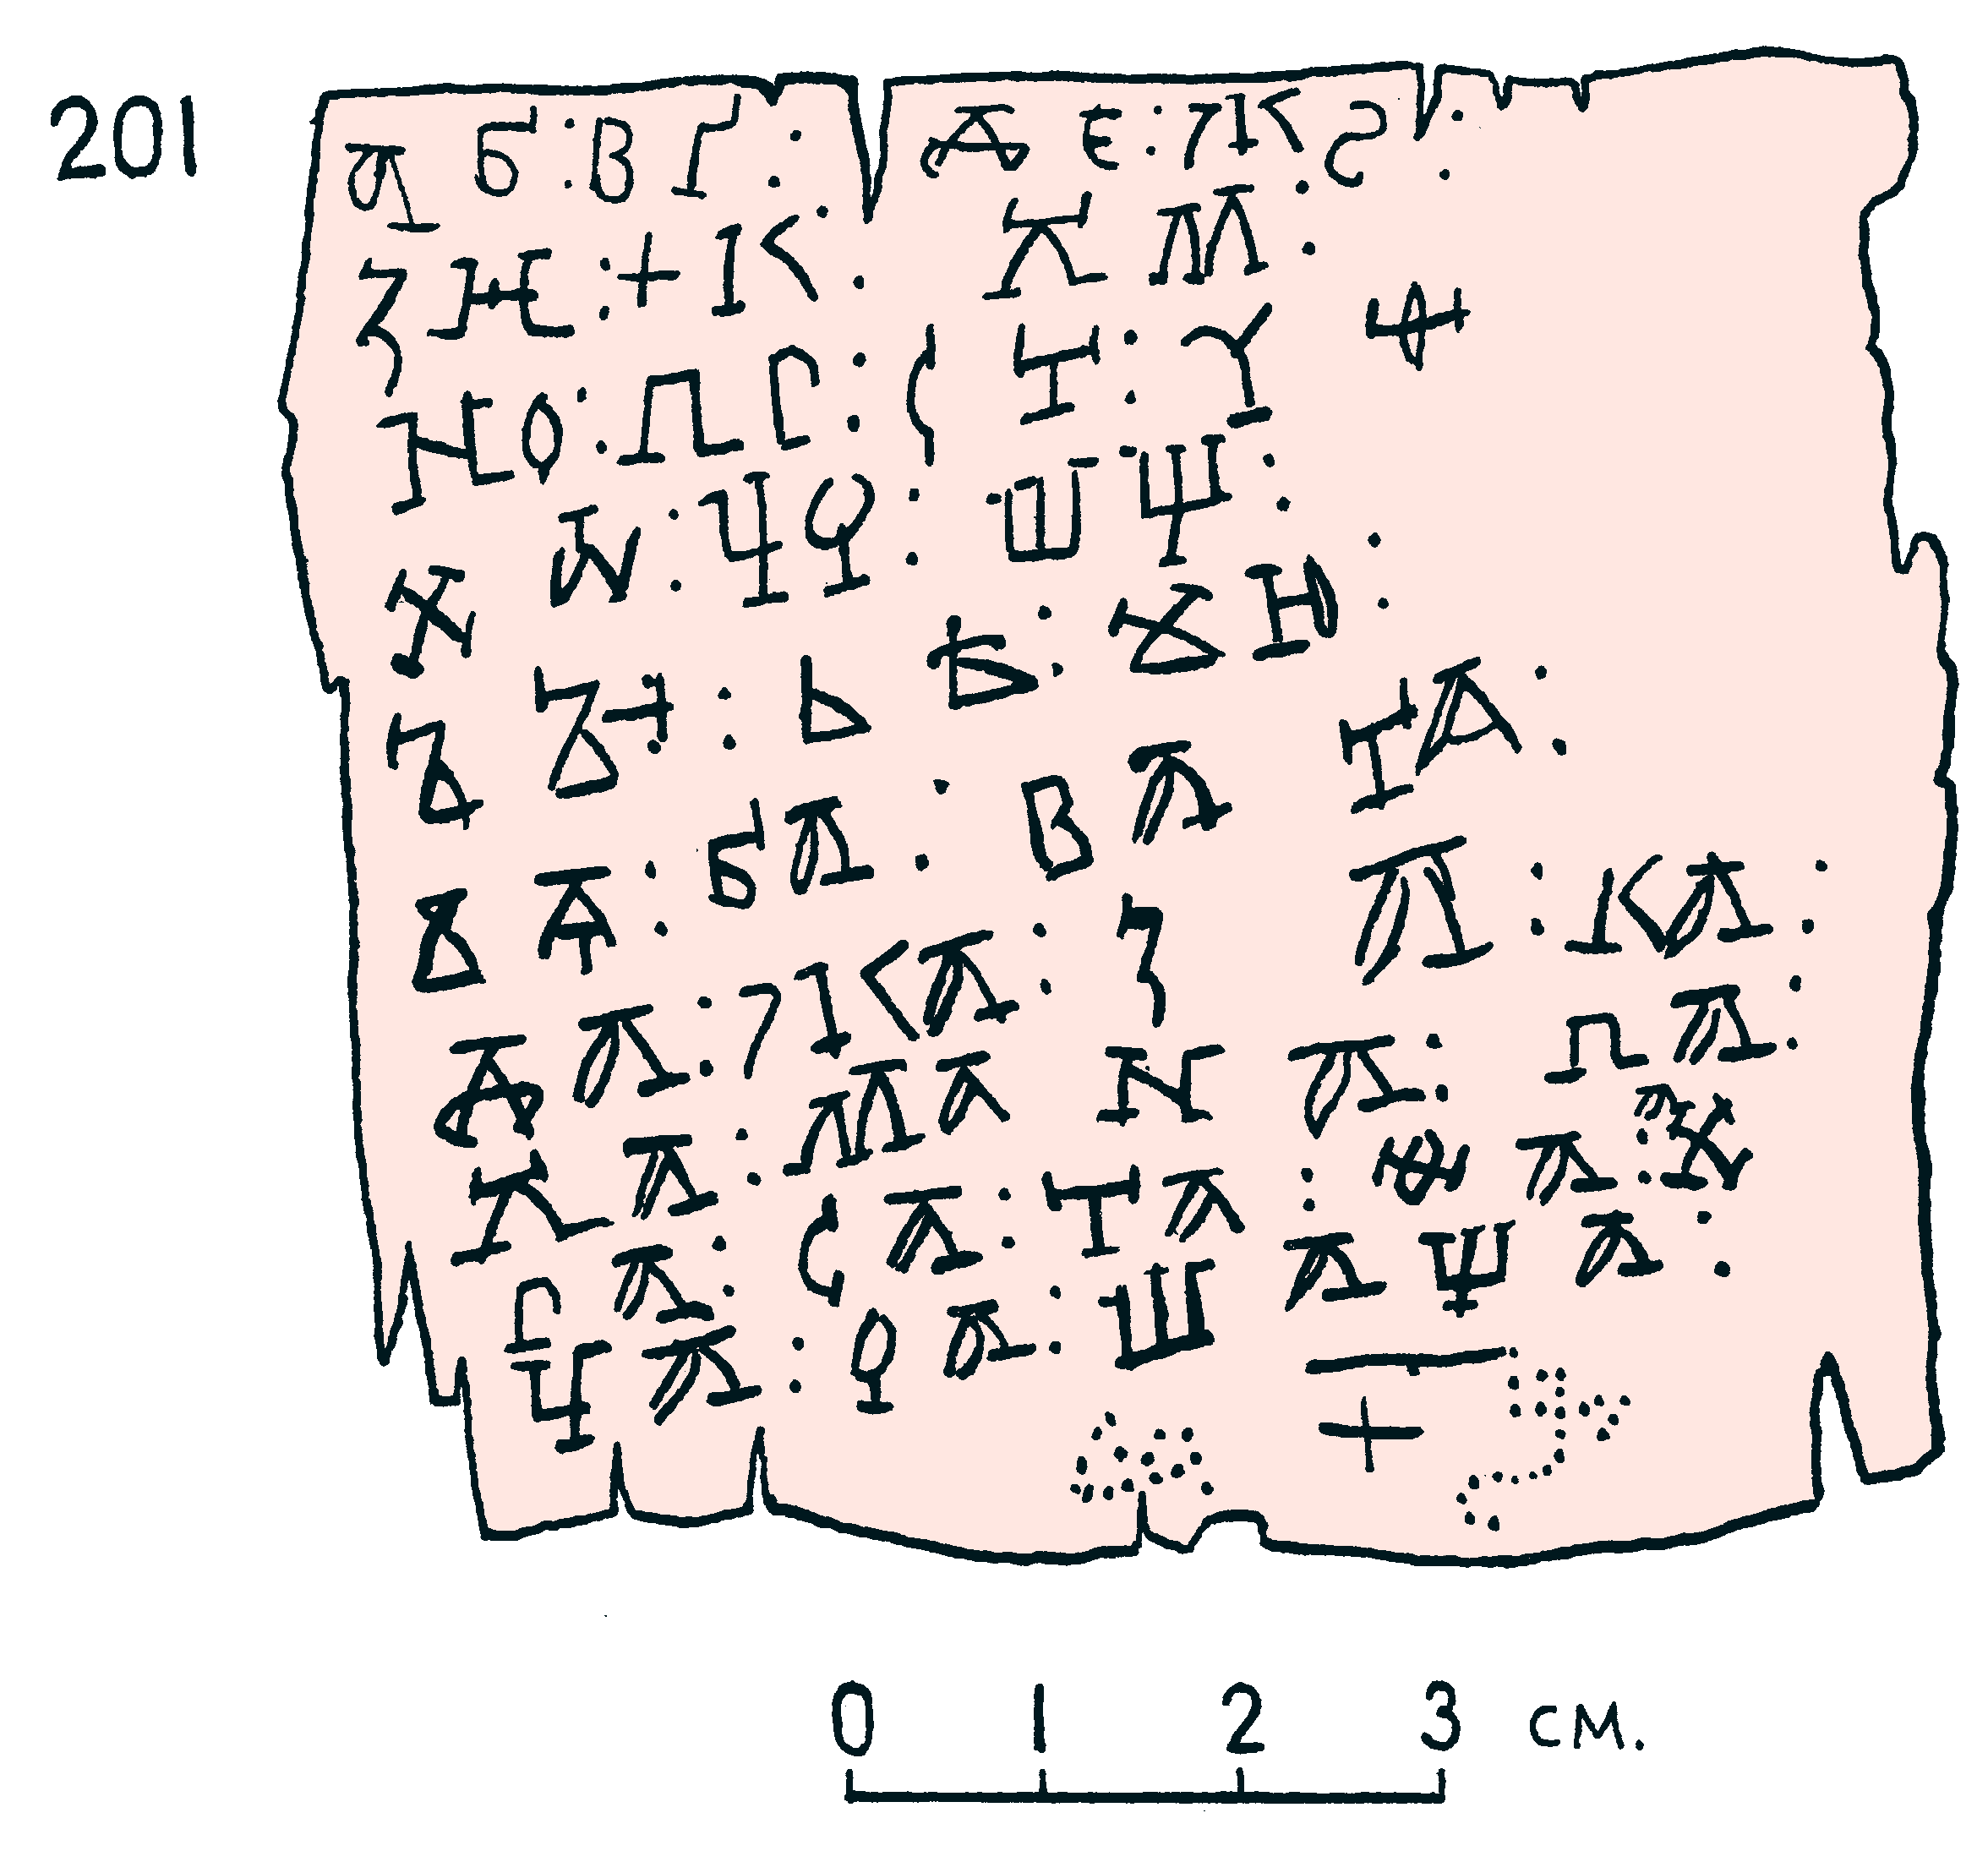 201
а б : в г : д е : ж ѕ :
з н : і к : л м :
н о : п р : с т : у ф
х ѡ : ц ч : ш щ :
ъ ꙑ : ь ѣ : ѫ ю :
ѫ ѧ : ба : ва га :
да : жа : за : ка :
ла : ма на : па :
ра : са : та : фа : ха
ца : ча : ша ща :
0 1 2 3 см.